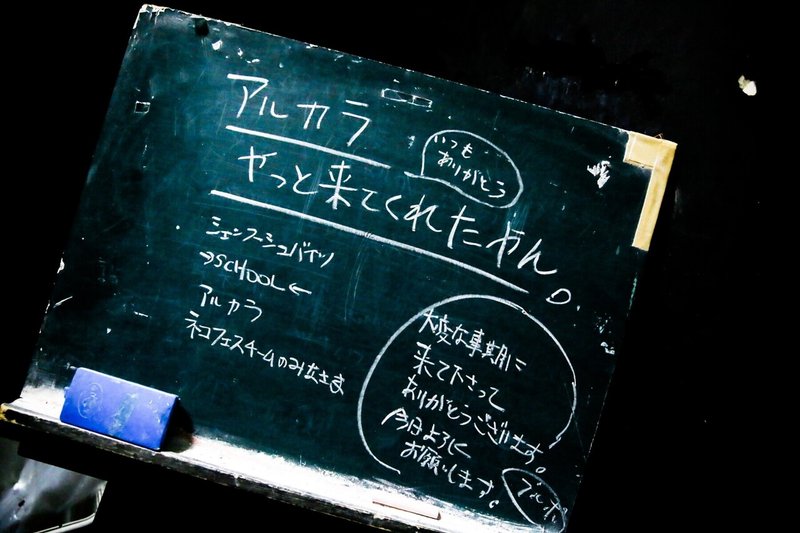 アルカラ
いつも
ありがとう
やっと来てくれたやん。
シェンフーシュバイツ
→SCHOOL←
アルカラ
ネコフェスチームのみなさま
大変な事期に
来て下さって
ありがとうございます。
今日よろしく
お願いします。